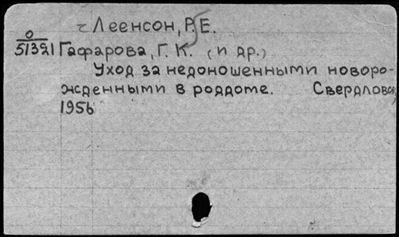 Леенсон, Р.Е.
0
51321 Гафарова, Г. К. (и др.)
Уход за недоношенными новоро-
жденными в роддоме. Свердловск,
1956